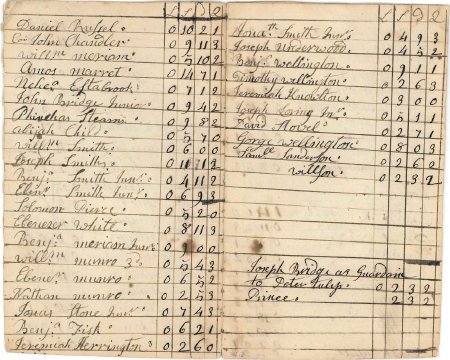 £ S D 2
Daniel Russel. 0 10 2 1
John Chandler. 0 9 11 3
Willm meriam. 0 5 10 2
Amos marret. 0 14 7 1
Estabrook. 0 7 1 2
John Bridge Junior. 0 9 4 2
Phinehas Stearns. 0 9 8 2
abijah Child. 0 5 7 0
Willm Smith. 0 6 0 0
Joseph Smith. 0 11 11 3
Benjn Smith Junr. 0 4 11 2
Ebenr Smith Junr. 0 6 9 3
Solomon Pierce. 0 5 2 0
Ebenezer White. 0 8 11 3
Benjn meriam Junr. 0 9 0 0
Willm munro 3d. 0 5 4 3
Ebenr munro. 0 6 5 2
Nathan munro. 0 2 5 3
Jonas Stone Junr. 0 7 4 3
Benjn Fisk. 0 6 2 1
Jeremiah Herrington. 0 2 6 0
£ S D 2
Jonath Smith Junr. 0 4 9 3
Joseph Underwood. 0 4 5 2
Benjn Wellington. 0 9 1 1
Timothy Wellington. 0 2 6 3
Jeremiah Knowlton. 0 3 0 0
Joseph Loring Jnr. 0 5 1 1
David 0 2 7 1
George Wellington. 0 8 0 3
Samll Sanderson. 0 2 6 2
Willson. 0 2 3 2
Joseph Bridge as Guardian
to Peter Tulip. 0 2 3 2
Prince. 2 3 2